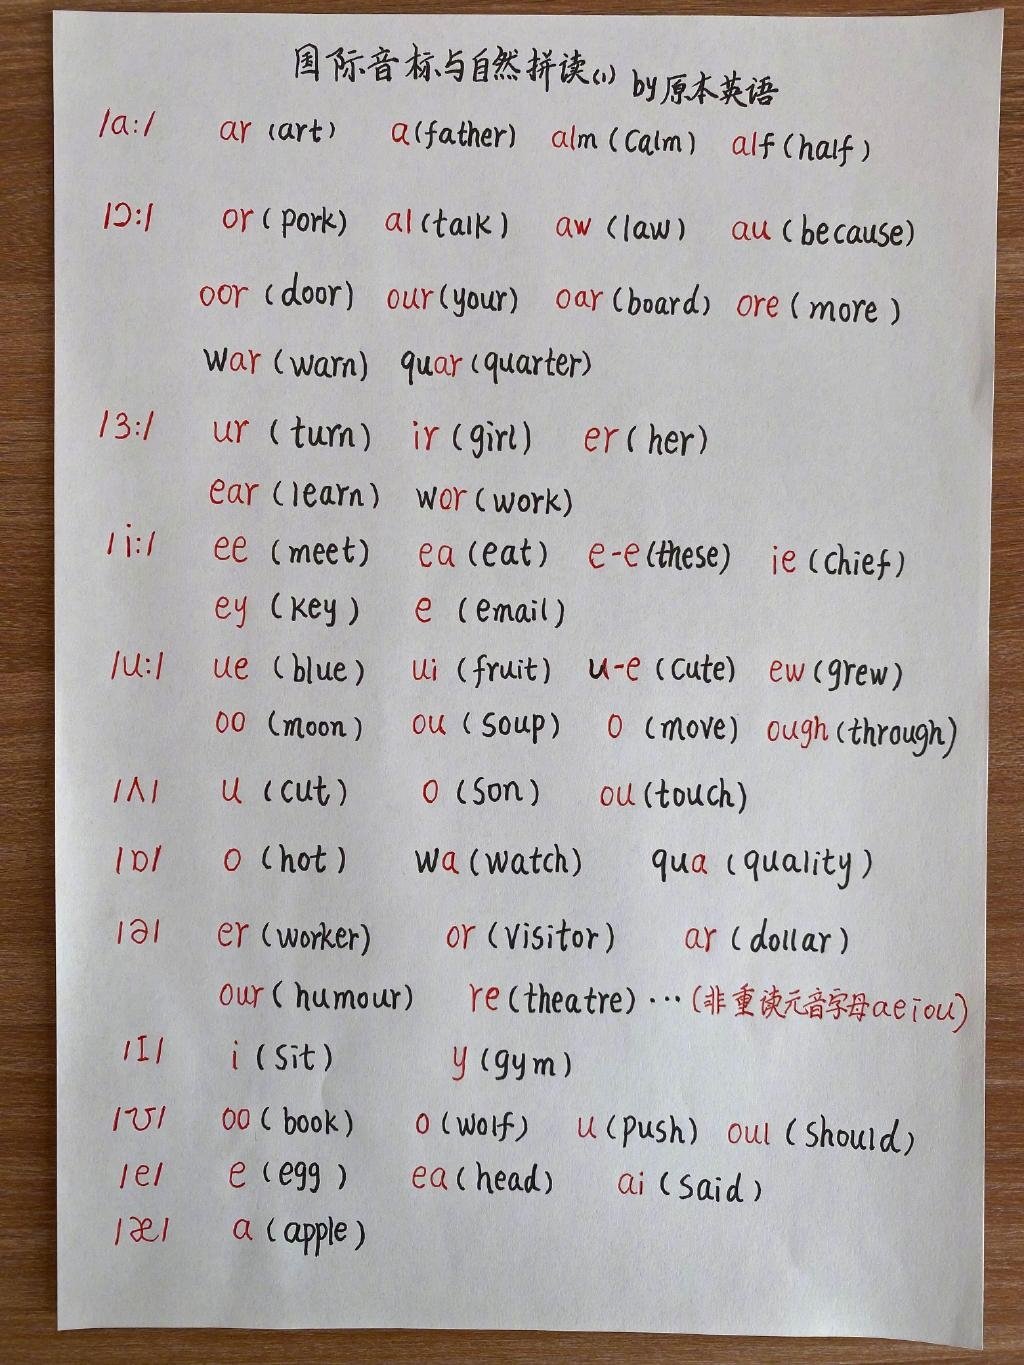 国际音标与自然拼读(1) by原本英语
/ɑ:/ ar (art) a(father) alm (calm) alf (half)
/ɔ:/ or (pork) al (talk) aw (law) au (because)
oor (door) our (your) oar (board) ore (more)
war (warn) quar (quarter)
/ɜ:/ ur (turn) ir (girl) er (her)
ear (learn) wor (work)
/i:/ ee (meet) ea (eat) e-e (these) ie (chief)
ey (key) e (email)
/u:/ ue (blue) ui (fruit) u-e (cute) ew (grew)
oo (moon) ou (soup) o (move) ough (through)
/ʌ/ u (cut) o (son) ou (touch)
/ɒ/ o (hot) wa (watch) qua (quality)
/ə/ er (worker) or (visitor) ar (dollar)
our (humour) re (theatre) ··· (非重读元音字母aeiou)
/ɪ/ i (sit) y (gym)
/ʊ/ oo (book) o (wolf) u (push) oul (should)
/e/ e (egg) ea (head) ai (said)
/æ/ a (apple)